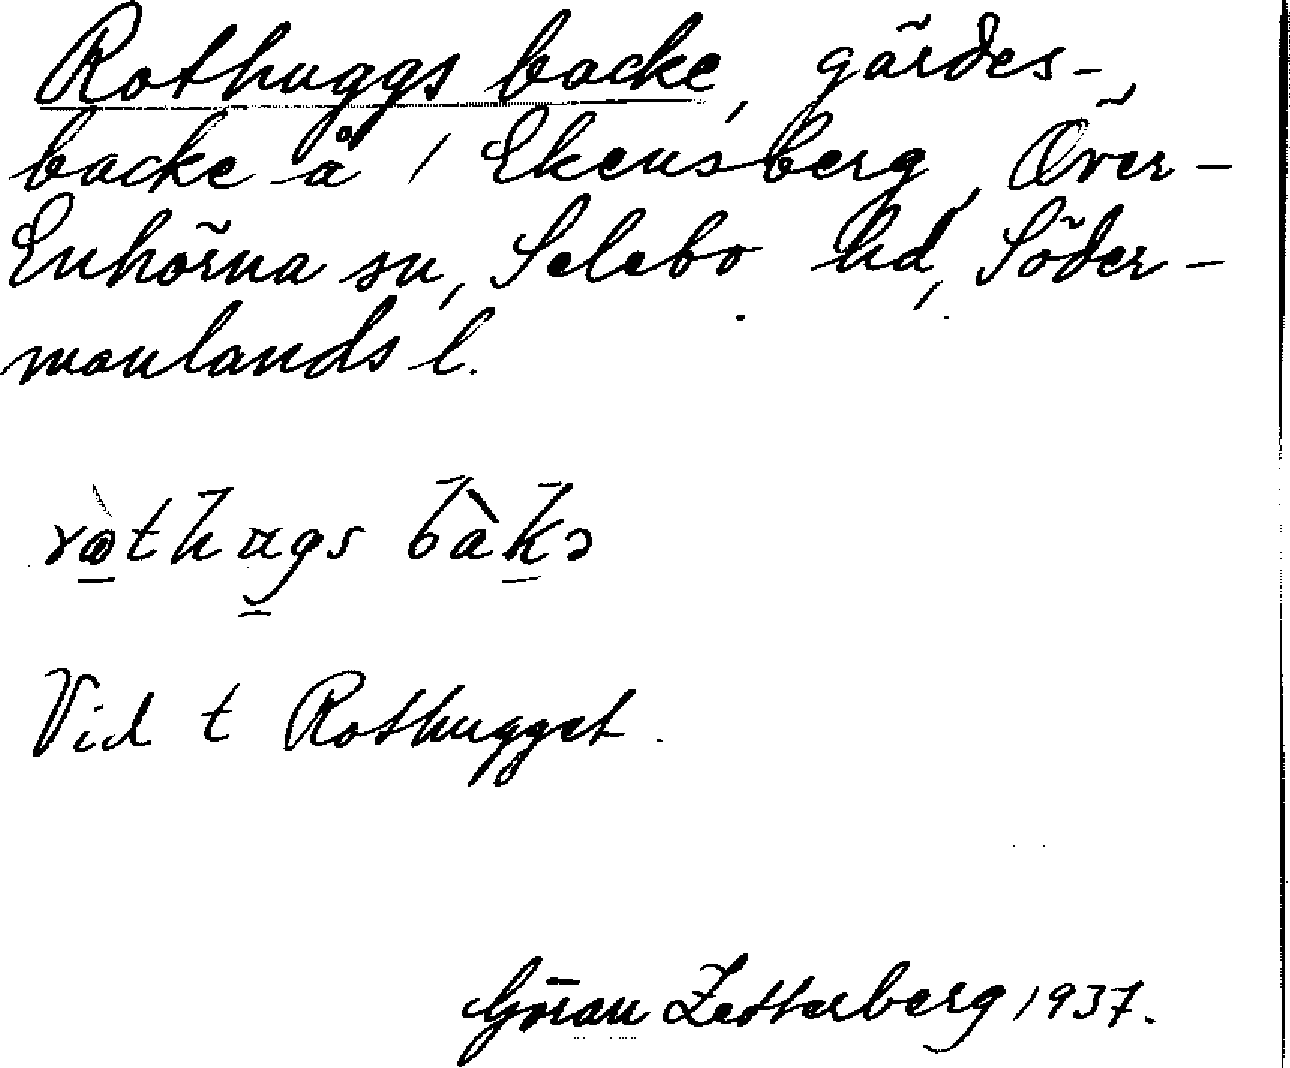 Rothuggs backe, gärdes-
backe å / Ekensberg, Över-
Enhörna sn, Selebo hd, Söder-
manlands l.
Vid t Rothugget.
Göran Zetterberg 1937.